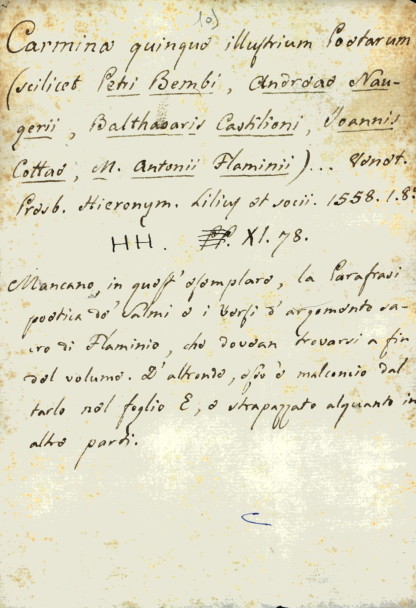 10)
Carmina quinque illustrium Poetarum
(scilicet Petri Bembi, Andreae Nau-
gerii, Balthasaris Castilioni, Joannis
Cottae, M. Antonii Flaminii)... Venet.
Presb. Hieronym. Lilius et socii. 1558. 1. 8°
HH. XI. 78.
Mancano, in quest' esemplare, la Parafrasi
poetica de' Salmi e i versi d' argomento sa-
cro di Flaminio, che dovean trovarsi a fin
del volume. D' altronde, esso è malconcio dal
tarlo nel foglio E, e strapazzato alquanto in
altre parti.